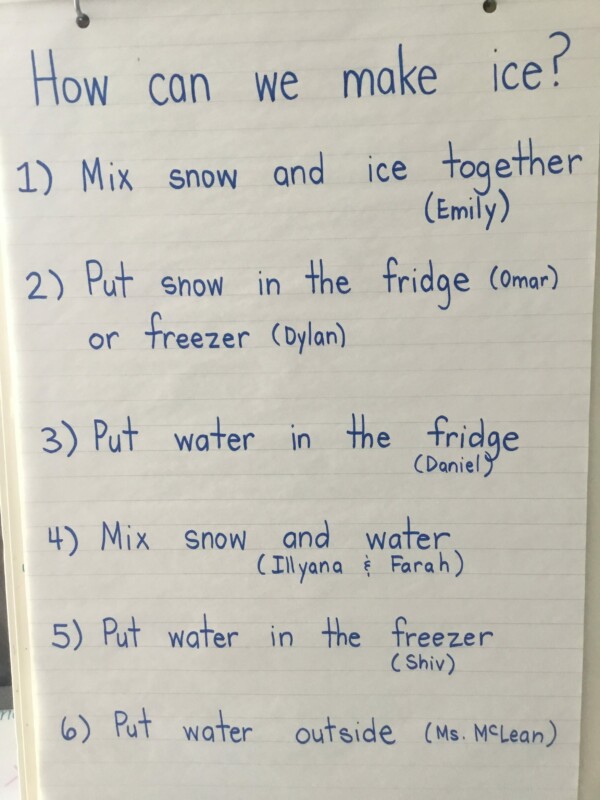 How can we make ice?
1) Mix snow and ice together
(Emily)
2) Put snow in the fridge (Omar)
or freezer (Dylan)
3) Put water in the fridge
(Daniel)
4) Mix snow and water
(Illyana & Farah)
5) Put water in the freezer
(Shiv)
6) Put water outside (Ms. McLean)